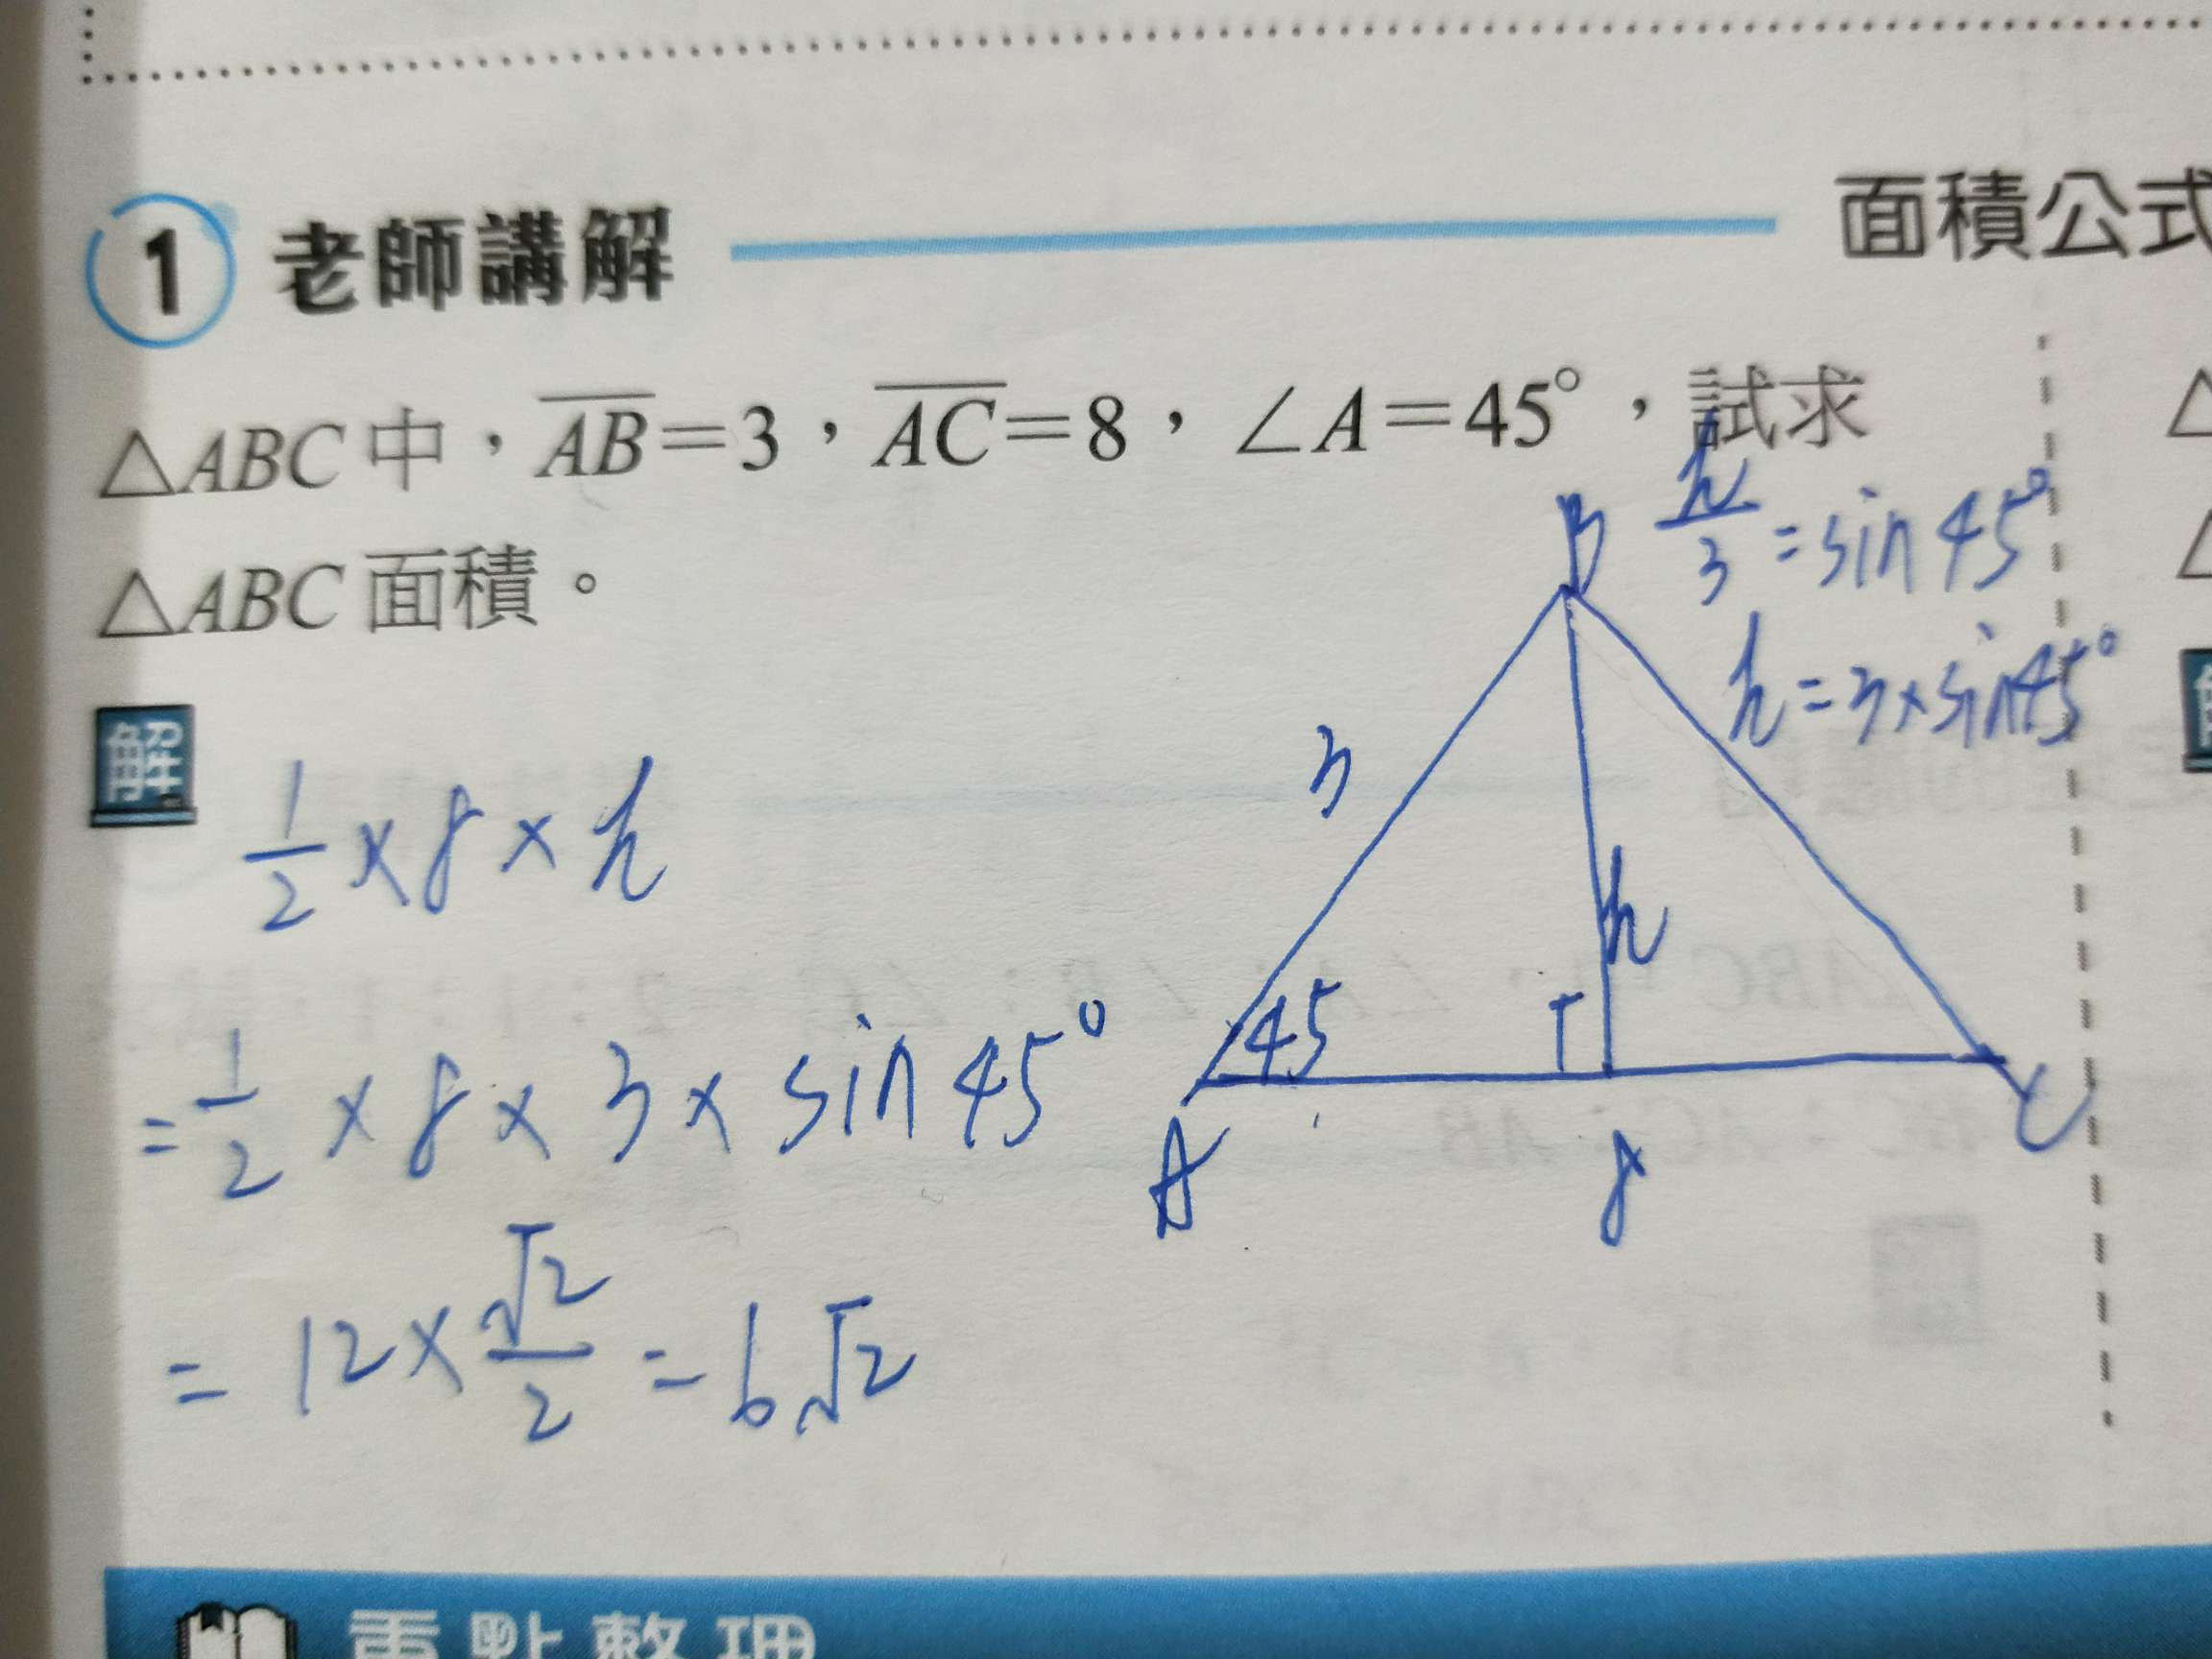 1 老師講解 面積公式
△ABC 中，AB=3，AC=8，∠A=45°，試求
△ABC 面積。
解
1/2 × 8 × h
= 1/2 × 8 × 3 × sin 45°
= 12 × √2/2 = 6√2
B
h/3 = sin 45°
h = 3 × sin 45°
3
h
45
A
8
C
重點整理